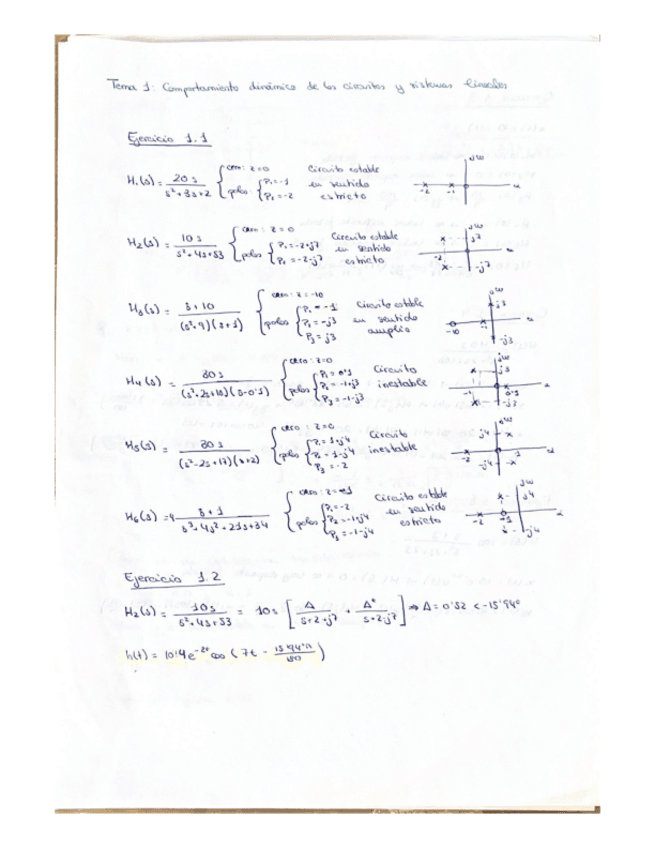 Tema 1: Comportamiento dinámico de los circuitos y sistemas lineales
Ejercicio 1.1
H₁(s) = 20s / (s²+3s+2) { cero: z=0 polos { P₁=-1 P₂=-2 Circuito estable en sentido estricto jω -2 -1
H₂(s) = 10s / (s²+4s+53) { cero: z=0 polos { P₁=-2+j7 P₂=-2-j7 Circuito estable en sentido estricto jω j7 -2 -j7
H₃(s) = s+10 / (s²+9)(s+1) { cero: z=-10 polos { P₁=-1 P₂=-j3 P₃=j3 Circuito estable en sentido amplio jω j3 -10 -1 -j3
H₄(s) = 30s / (s²+2s+10)(s-0'1) { cero: z=0 polos { P₁=0'1 P₂=-1+j3 P₃=-1-j3 Circuito inestable jω j3 -1 0'1 -j3
H₅(s) = 30s / (s²-2s+17)(s+2) { cero: z=0 polos { P₁=1+j4 P₂=1-j4 P₃=-2 Circuito inestable jω j4 -2 1 -j4
H₆(s) = 4 s+1 / (s³+4s²+21s+34) { cero: z=-1 polos { P₁=-2 P₂=-1+j4 P₃=-1-j4 Circuito estable en sentido estricto jω j4 -2 -1 -j4
Ejercicio 1.2
H₂(s) = 10s / (s²+4s+53) = 10s [ A / (s+2+j7) + A* / (s+2-j7) ] ⇒ A = 0'52 <-15'94º
h(t) = 10'4e^-2t cos (7t - 15'94π/180)